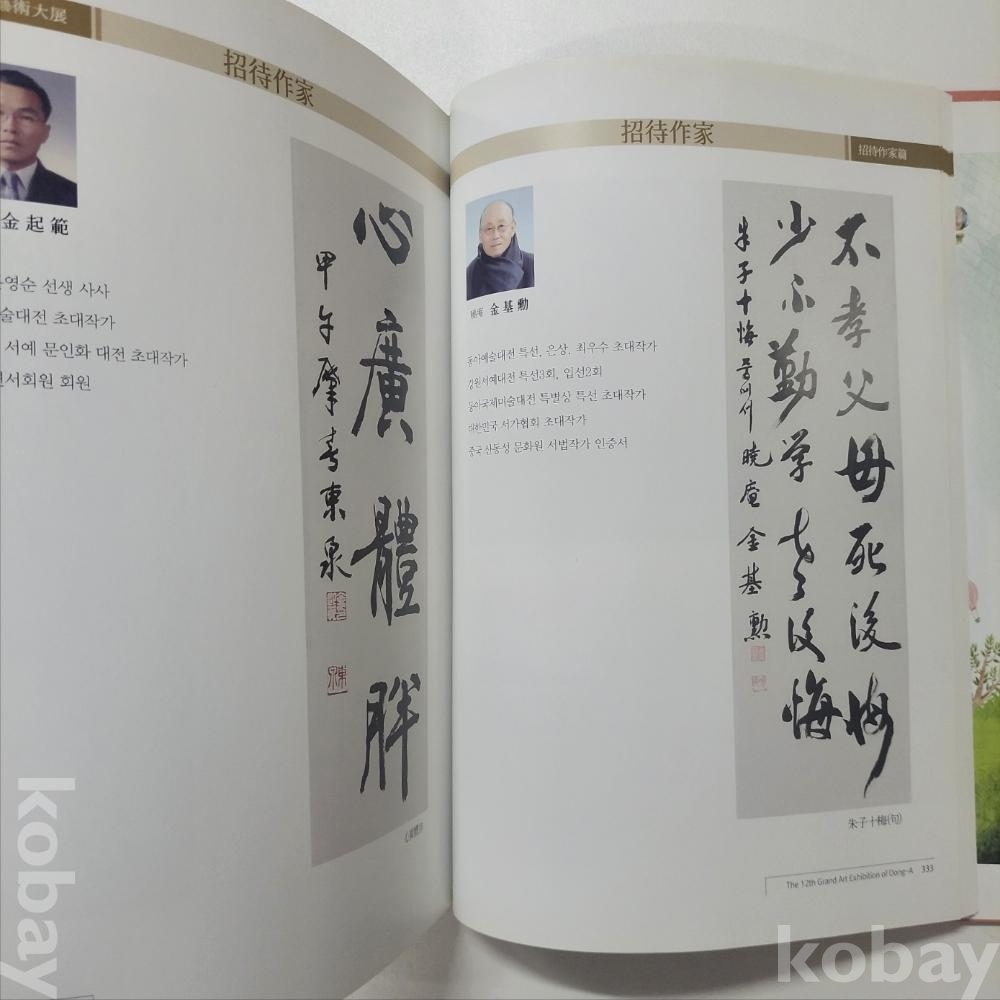 藝術大展
招待作家
金起範
영순 선생 사사
술대전 초대작가
서예 문인화 대전 초대작가
서회원 회원
心廣體胖
甲午肇春東泉
招待作家
招待作家篇
金基勳
동아예술대전 특선, 은상, 최우수 초대작가
강원서예대전 특선3회, 입선2회
동아국제미술대전 특별상 특선 초대작가
대한민국 서가협회 초대작가
중국 산동성 문화원 서법작가 인증서
不孝父母死後悔
少不勤學老後悔
朱子十悔 句 曉庵 金基勳
朱子十梅(句)
The 12th Grand Art Exhibition of Dong-A 333
kobay
kobay